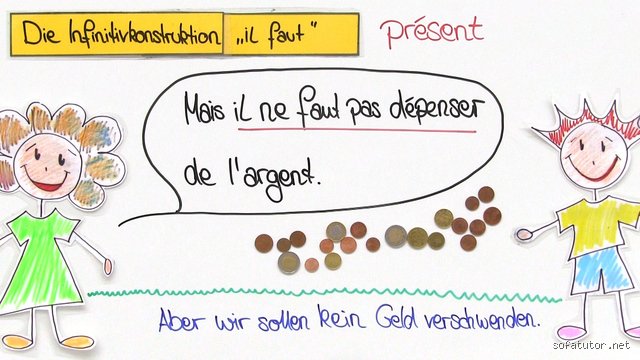 Die Infinitivkonstruktion „il faut“ présent
Mais il ne faut pas dépenser
de l'argent.
Aber wir sollen kein Geld verschwenden.
sofatutor.net